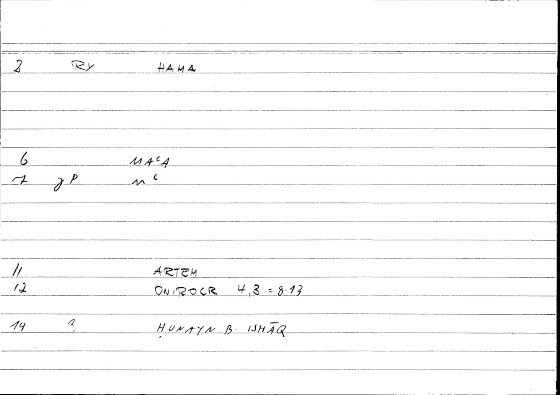 2 RY HAMA
6 MAʿA
7 gP mʿ
11 ARTEM
12 ONIROCR 4,3 = 8.13
14 ? ḤUNAYN B. ISHĀQ